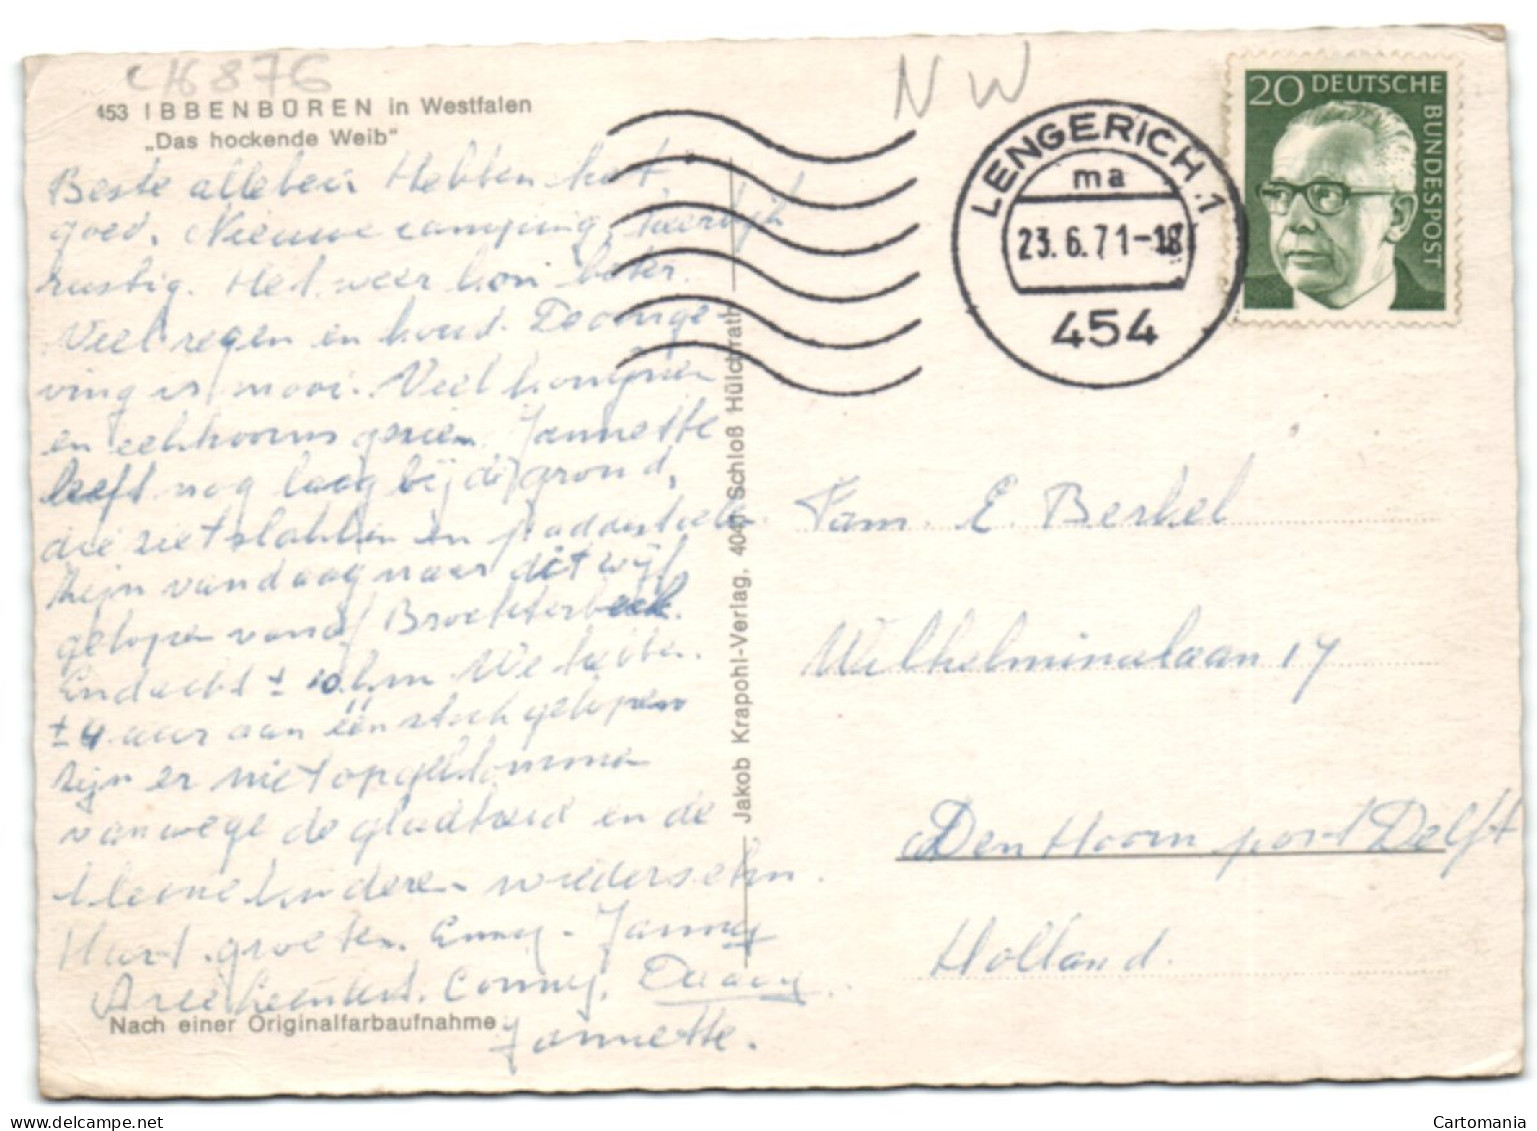 CK 876
N W
453 IBBENBÜREN in Westfalen
„Das hockende Weib"
Beste allebei Hebben het
goed. Nieuwe camping, heerlijk
rustig. Het weer kon beter.
Veel regen en koud. De omge
ving is mooi. Veel konijnen
en eekhoorns gezien. Jannette
leeft nog laag bij de grond,
die ziet slakken en paddestoelen.
Zijn vandaag naar dit wijf
gelopen vanaf Brochterbeck.
± 10 km We hebben
± 4 uur aan één stuk gelopen
zijn er niet opgeklommen
vanwege de gladheid en de
kleine kinderen wiedersehn.
Hart. groeten. Enny - Janny
Arie Leendert. Conny,
Jannette.
Nach einer Originalfarbaufnahme
Jakob Krapohl-Verlag, 4041 Schloß Hülchrath
LENGERICH 1
ma
23.6.71-18
454
20 DEUTSCHE
BUNDESPOST
Fam. E. Berkel
Wilhelminalaan 17
Den Hoorn post Delft
Holland.
Cartomania
www.delcampe.net